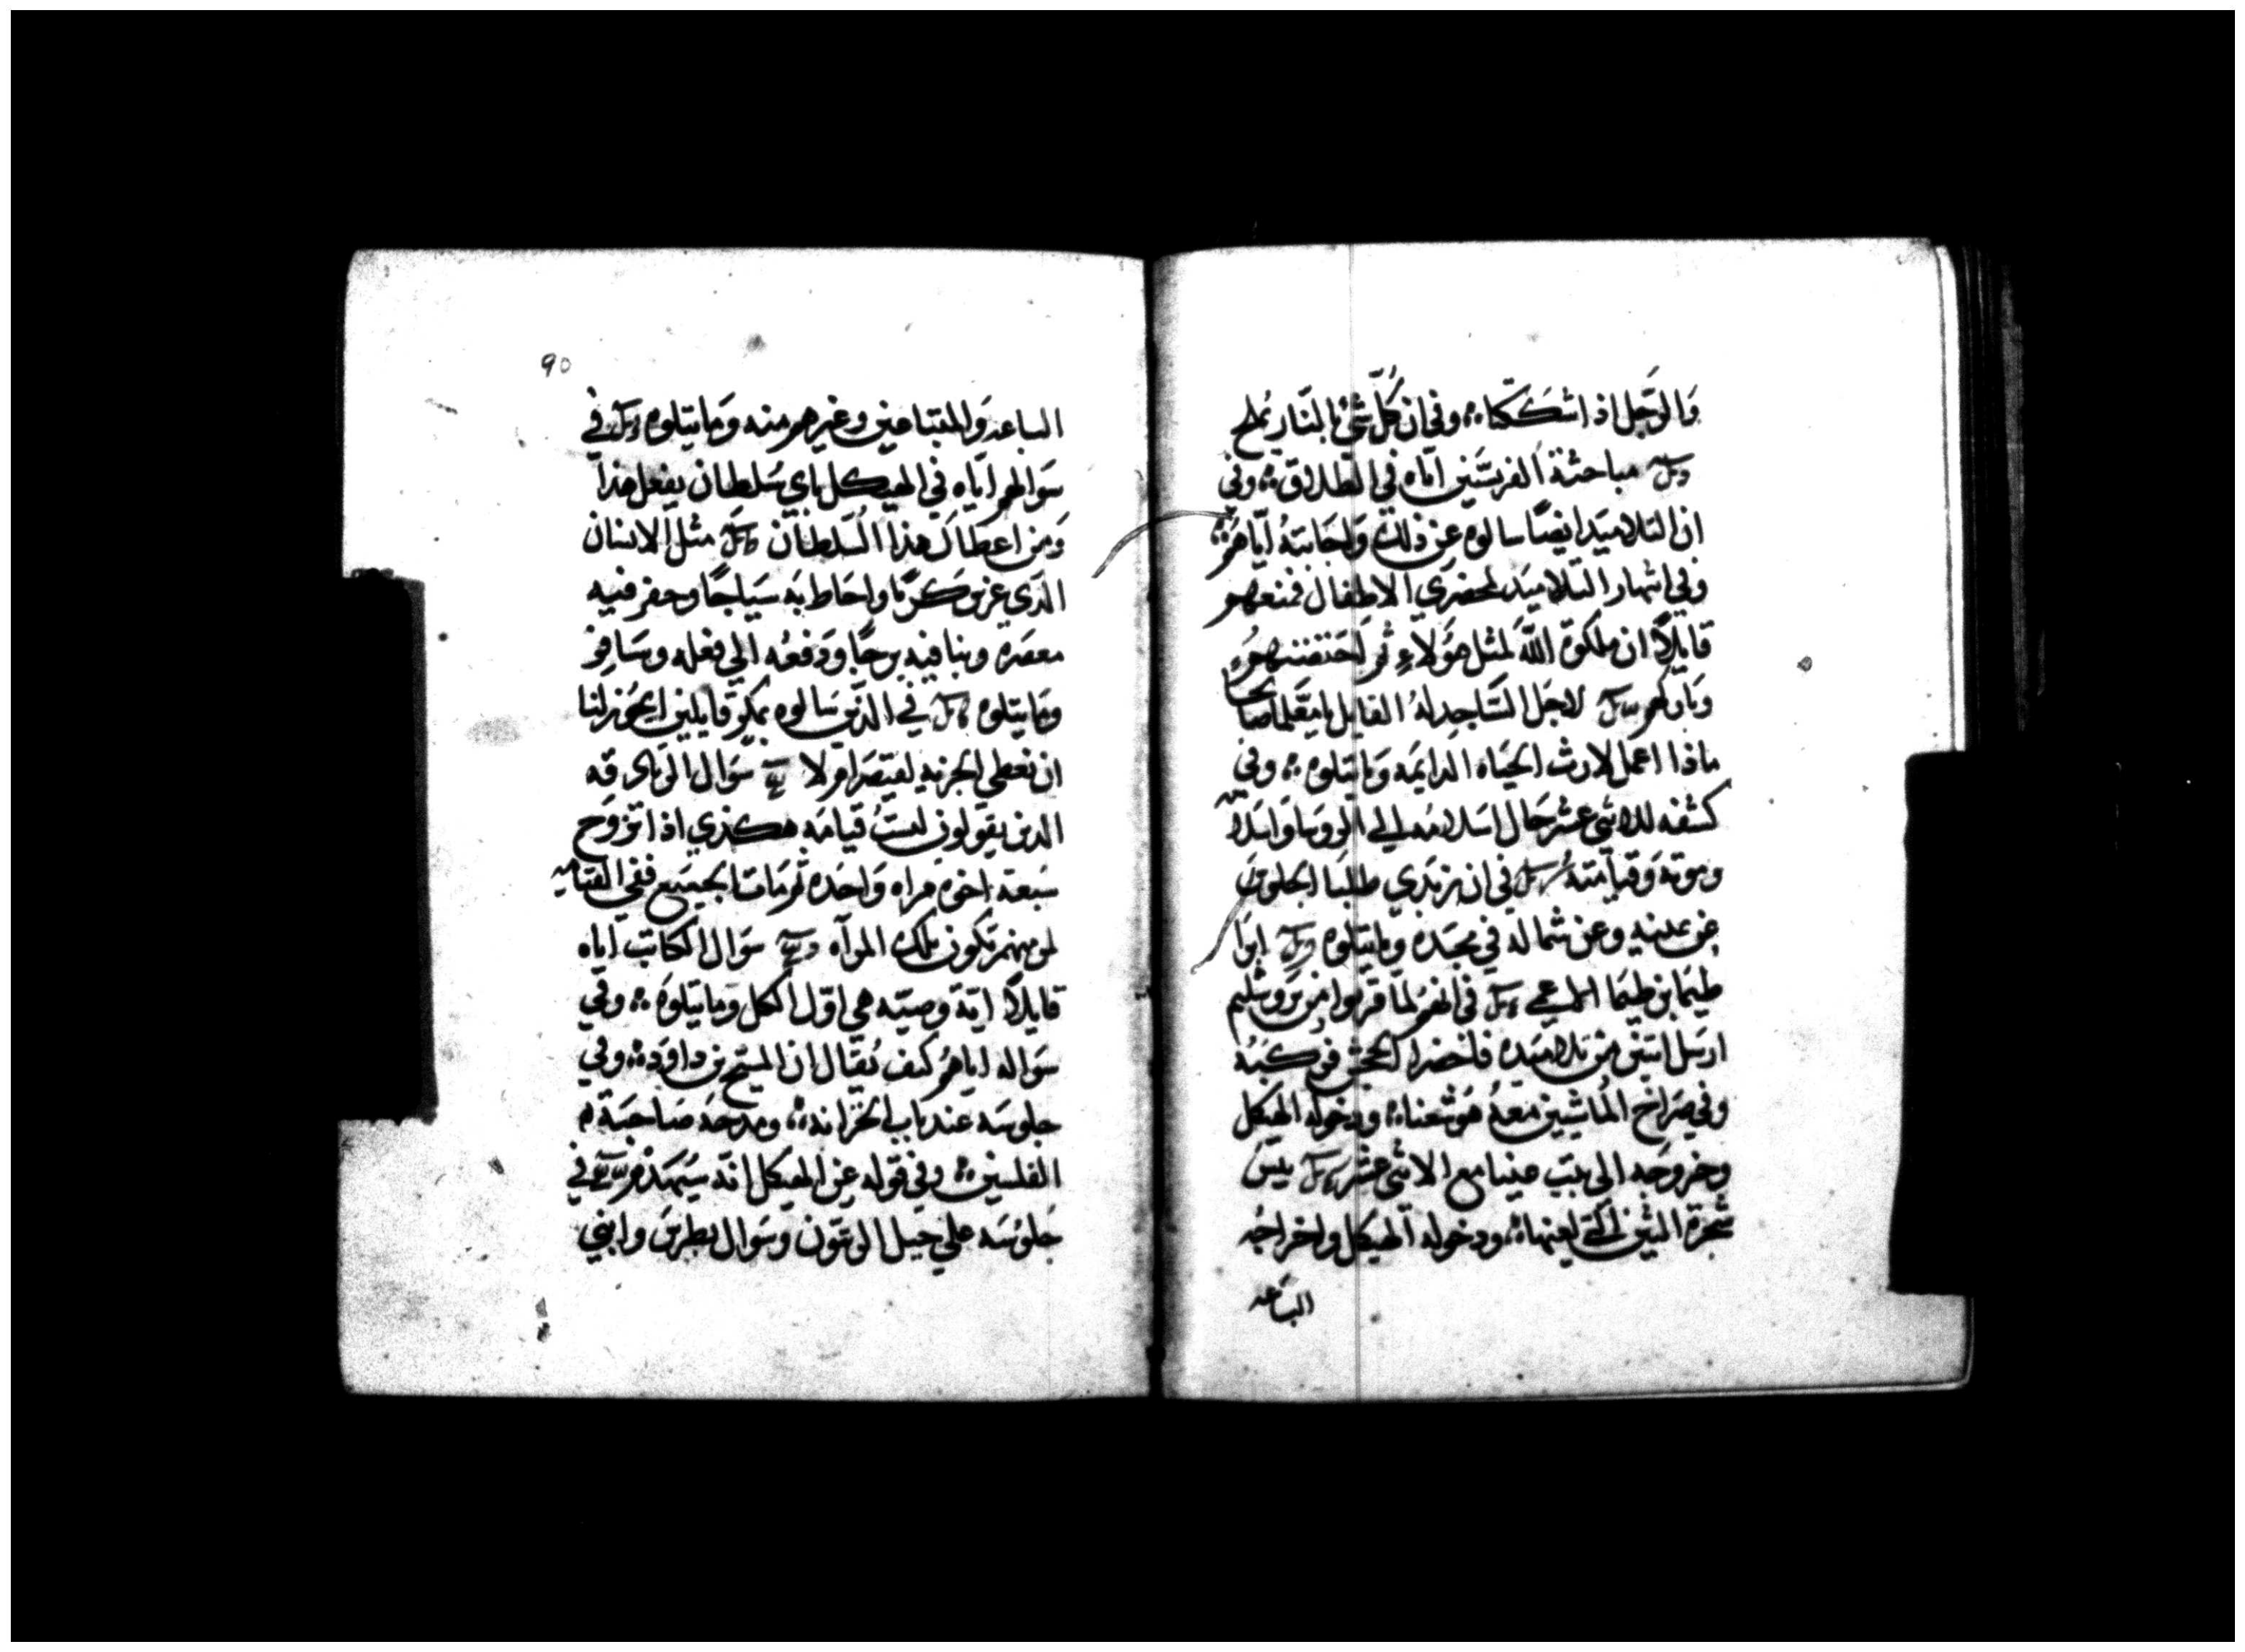 وَالرَّجل اذ اشَكَكتاه ؞ وفي ان كُلَّ شَي بالنَّار يُملح
مباحثة الفريسَّين اياه في الطلاق ؞ وفي
ان التلاميَد ايضًا سالوه عن ذلك وَاجَابتهُ اياهمُ ؞
وفي انتهار التلاميَد لمحضرَي الاطفال فمنعهم
قايلاً ان ملكوة اللّه لمثل هَوُلاءِ ثم احَتضنهمُ
وبَاركهم لاجَل السَّاجد لهُ القايل يا معَّلما صَالحا
ماذا اعمل لارث الحيَاه الدايمَه وَمايتلوه ؞ وفي
كشفه للاثني عشر حَال اسَلامه الي الروسَا
وموته وَقيامته في ان ابني زبدي طلبَا الجلوس
عن يمينه وعن شماله في مجَده ومايتلوه
طيمَا بن طيمَا الاعمي في انهمُ لما قربوا من يَروشليم
ارسَل اثنين من تلاميَده فاحَضرا الجحش فركبَهُ
وفي صَراخ المُاشيين معهُ هَوشعنا ؞ ودخوله الهيكل
وخروجَه الي بيت عينا مع الاثني عشر يبسَ
شجرة التين التي لعنها ؞ ودخوله الهيكل واخراجه
البَاعه
90
الباعه وَالمبتاعين وغيرهم منه وَمايتلوه في
سَوالهم اياه في الهيكل باي سَلطان يفعل هذا
وَمن اعطاكَ هذا السُّلطان مثل الانسان
الذي غرسَ كرمًا واحَاط به سَياجًا وحفر فيه
معصَره وبنا فيه برجًا ودَفعُه الي فعله وسَافر
ومَايتلوه في الذين سَالوه بمكر قايلين ايجُوز لنا
ان نعطي الجزيه لقيصَر ام لا سَوال الزنادقه
الدين يقولون ليسَت قيامَه هكذي اذا تزوَّج
سَبعة اخوه مراه وَاحَده ثم مَاتا الجميَع ففي القيامه
لمن منهم تكون تلك المرآه سَوال الكاتب اياه
قايلاً ايّة وصيّه هي اوّل الكل ومايتلوه ؞ وفي
سَواله اياهمُ كيف يُقال ان المسَيح بن داوَد ؞ وفي
جلوسَه عند باب الخزانه ؞ ومدحَه صَاحبَة
الفلسَين ؞ وفي قوله عن الهيكل انه سَيُهدم في
جَلوُسَه علي جبل الزيتون وسَوال بطرسَ وابني